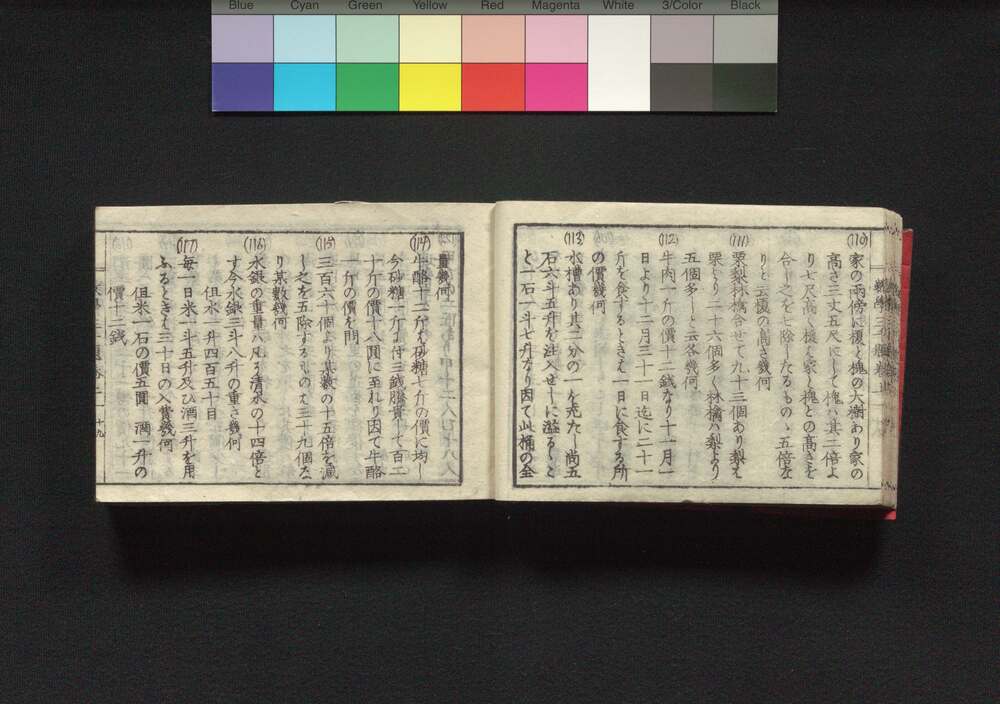 Blue Cyan Green Yellow Red Magenta White 3/Color Black
(110)
家の兩傍に榎と槐の大樹あり家の
高さ三丈五尺にして槐ハ其二倍よ
り七尺高し榎ハ家と槐との高さを
合し之を七除したるものゝ五倍な
りと云榎の高さ幾何
(111)
栗梨林檎合せて九十三個あり梨ハ
栗より二十六個多く林檎ハ梨より
五個多しと云各幾何
(112)
牛肉一斤の價十二錢なり十一月一
日より十二月三十一日迄に二十一
斤を食するときハ一日に食する所
の價幾何
(113)
水槽あり其二分の一を充たし尚五
石六斗五升を注入せしに溢るゝこ
と一石一斗七升なり因て此桶の全
量幾何
(114)
牛酪十二斤ハ砂糖七斤の價に均し
今砂糖一斤に付三錢騰貴して百二
十斤の價十八圓に至れり因て牛酪
一斤の價を問
(115)
三百六十個より某數の十五倍を減
し之を五除するものハ三十九個な
り某數幾何
(116)
水銀の重量ハ凡そ清水の十四倍と
す今水銀三斗八升の重さ幾何
但水一升四百五十目
(117)
毎一日米一斗五升及ひ酒三升を用
ふるときハ三十日の入費幾何
但米一石の價五圓 酒一升の
價十二錢
十九